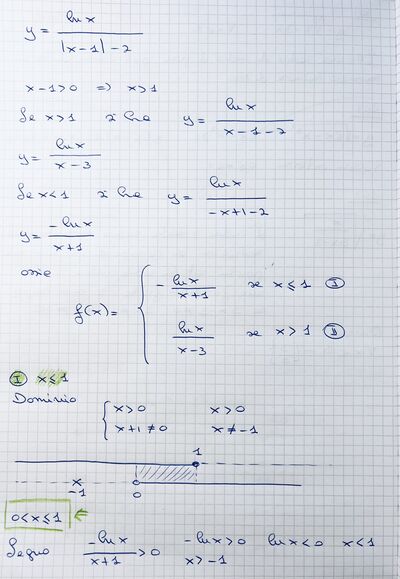 y = ln x / (|x-1| - 2)
x-1>0 => x>1
Se x>1 si ha y = ln x / (x-1-2)
y = ln x / (x-3)
Se x<1 si ha y = ln x / (-x+1-2)
y = -ln x / (x+1)
ossia
f(x) = { - ln x / (x+1) se x ≤ 1 Ⓘ
ln x / (x-3) se x > 1 Ⓘ Ⓘ
Ⓘ x ≤ 1
Dominio { x>0 x>0
x+1 ≠ 0 x ≠ -1
1
x
-1 0
0<x≤1
Segno -ln x / (x+1) > 0 -ln x>0 ln x<0 x<1
x>-1